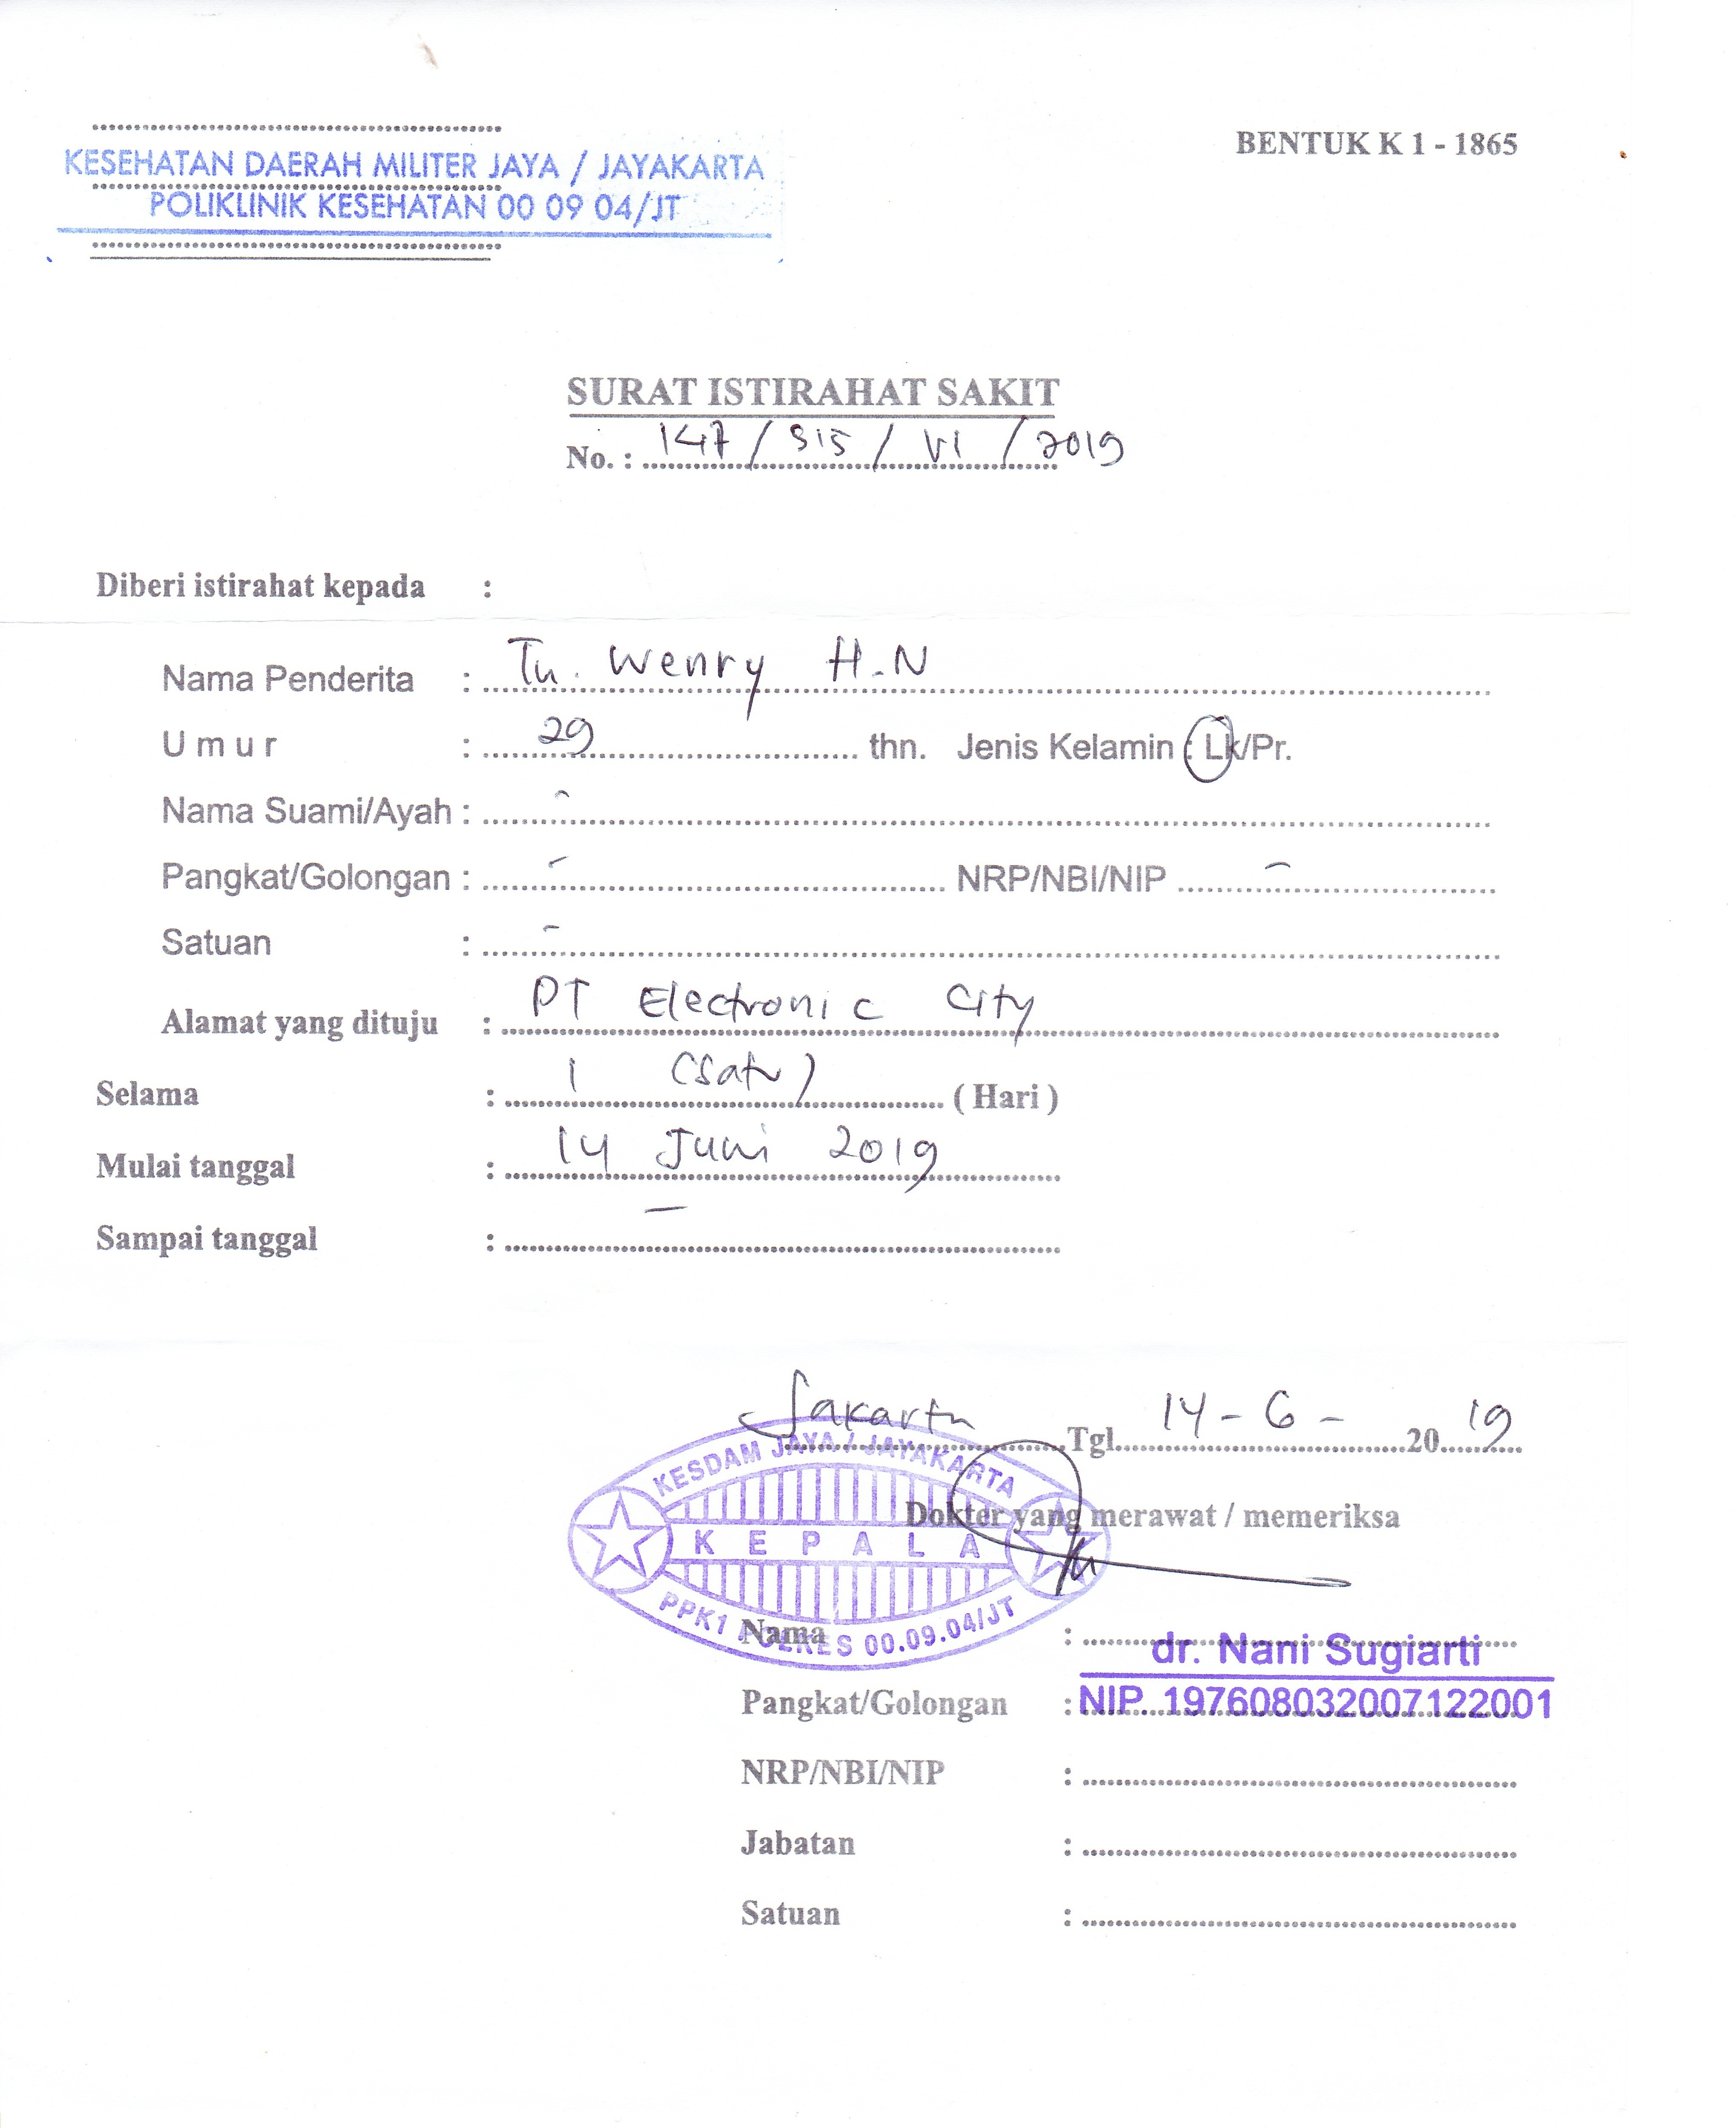 KESEHATAN DAERAH MILITER JAYA / JAYAKARTA
POLIKLINIK KESEHATAN 00 09 04/JT
BENTUK K 1 - 1865
SURAT ISTIRAHAT SAKIT
No. : 147 / SIS / VI / 2019
Diberi istirahat kepada :
Nama Penderita : Tn. Wenry H.N
U m u r : 29 thn. Jenis Kelamin : Lk/Pr.
Nama Suami/Ayah : -
Pangkat/Golongan : - NRP/NBI/NIP -
Satuan : -
Alamat yang dituju : PT Electronic City
Selama : 1 (Satu) ( Hari )
Mulai tanggal : 14 Juni 2019
Sampai tanggal : -
Jakarta Tgl. 14 - 6 - 2019
KESDAM JAYA / JAYAKARTA
Dokter yang merawat / memeriksa
K E P A L A
PPK1 POLKES 00.09.04/JT
Nama : dr. Nani Sugiarti
Pangkat/Golongan : NIP. 197608032007122001
NRP/NBI/NIP :
Jabatan :
Satuan :